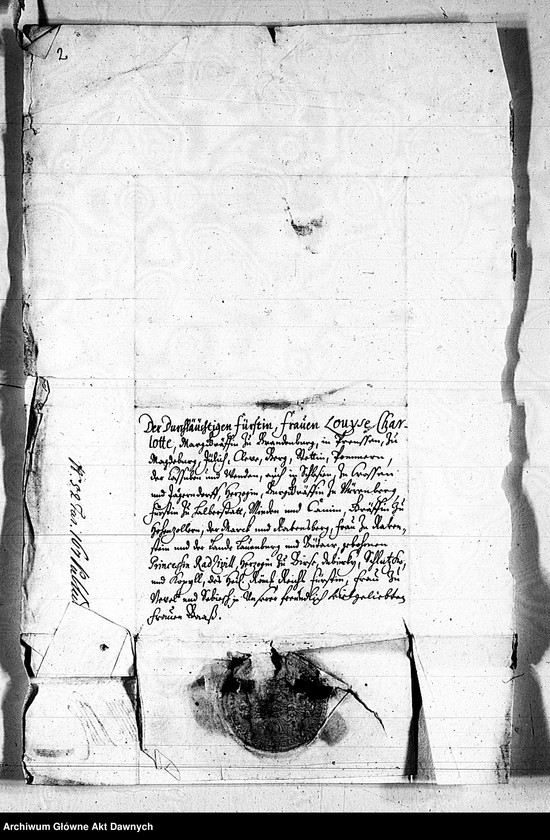 2
Der Durchläuchtigen Fürstin, Frauen Louyse Char-
lotte, Marggräffin Zu Brandenburg, in Preussen, Zu
Magdeburg, Jülich, Cleve, Berg, Stettin, Pommern,
der Cassuben und Wenden, auch in Schlesien, Zu Crossen
und Jägerndorff, Herzogin, Burggräffin Zu Nürenberg,
Fürstin Zu Halberstatt, Minden und Camin, Gräffin Zu
Hohenzollern, der Marck und Ravensberg, Frau Zu Raven-
stein und der Lande Lauenburg und Bütau, gebohrnen
Princessin Radzivill, Herzogin Zu Birse, Dubinky, Schlutzko,
und Kopyll, des Heil. Röm. Reichs Fürstin, Frau Zu
Nevel und Sebisch, Unserer freundlich vielgeliebten
Frauen Baaß.
Archiwum Główne Akt Dawnych